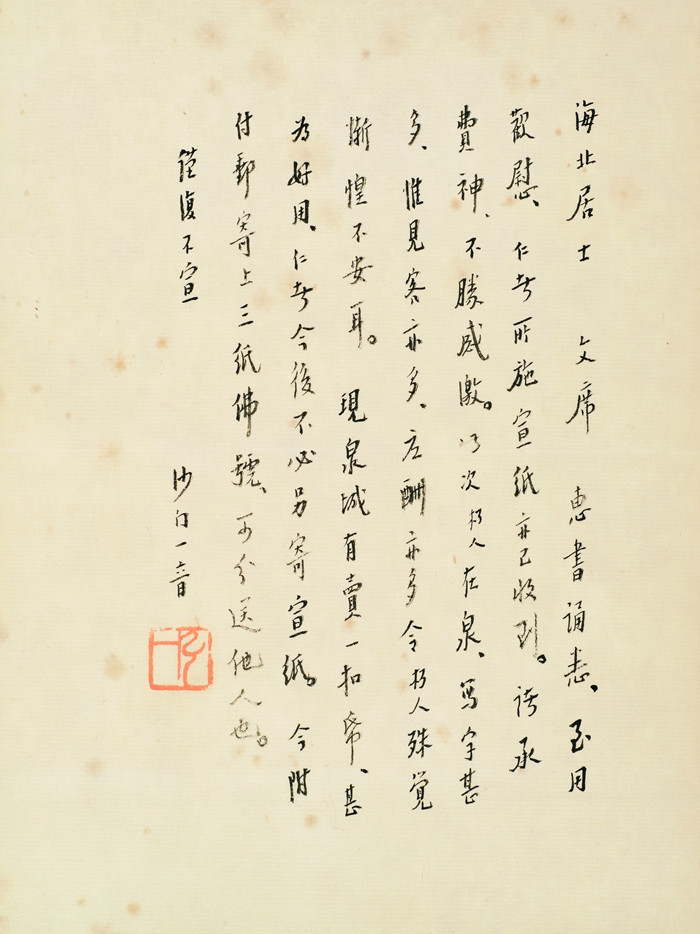 海北居士 文席 惠書誦悉、至用
歡慰、仁者所施宣紙亦已收到。諸承
費神、不勝感激。此次朽人在泉、寫字甚
多、惟見客亦多、应酬亦多令朽人殊覺
慚惶不安耳。現泉城有賣一扣紙、甚
為好用、仁者今後不必另寄宣紙。今附
付郵寄上三紙佛號、可分送他人也。
謹復不宣
沙門一音
弘一